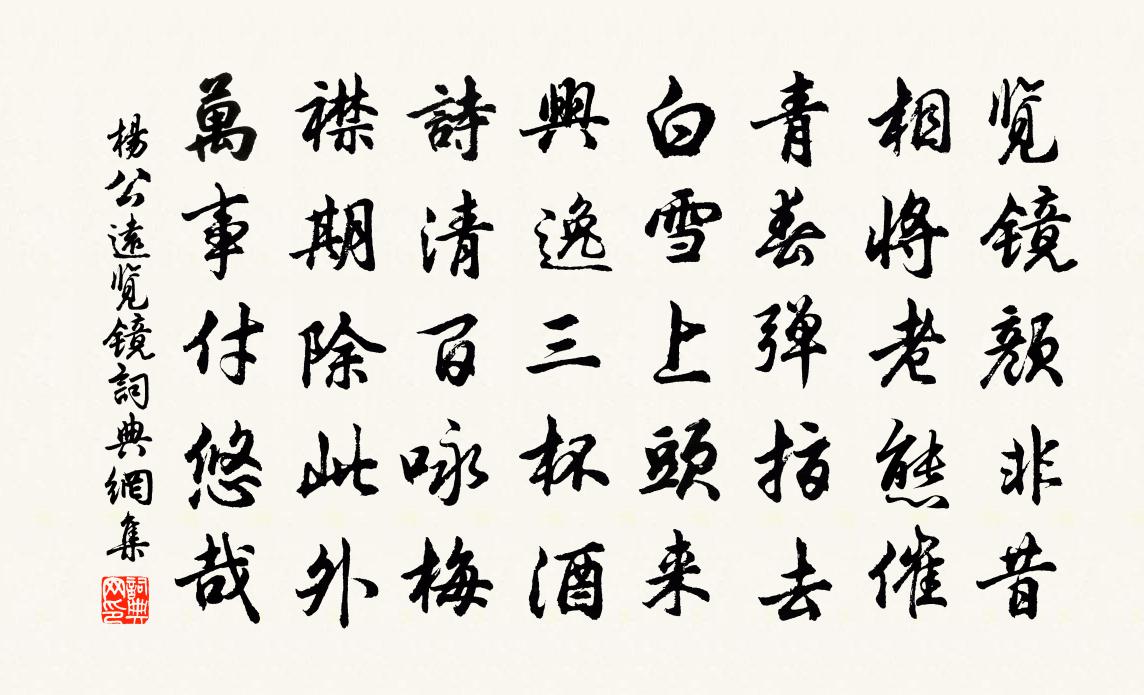 览镜颜非昔
相将老态催
青春弹指去
白雪上头来
興逸三杯酒
詩清百咏梅
襟期除此外
萬事付悠哉
楊公遠览镜詞典網集
詞典
网印